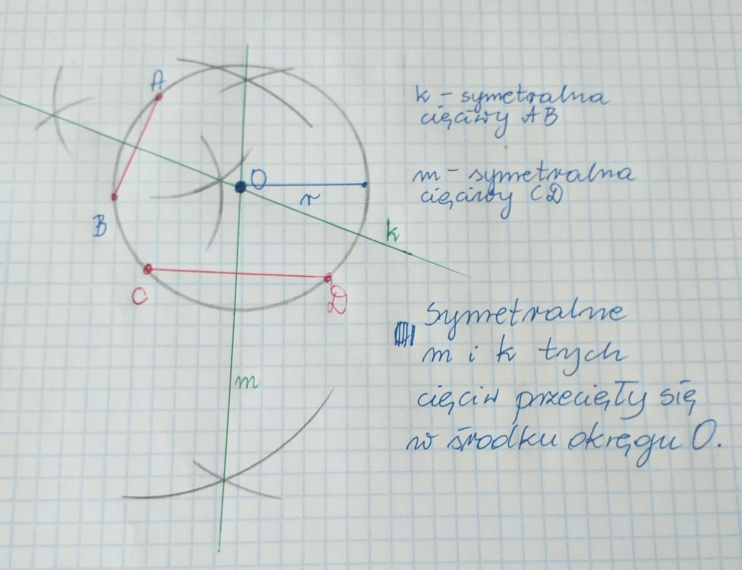 A
B
O
r
k
C
D
m
k - symetralna
cięciwy AB
m - symetralna
cięciwy CD
Symetralne
m i k tych
cięciw przecięły się
w środku okręgu O.